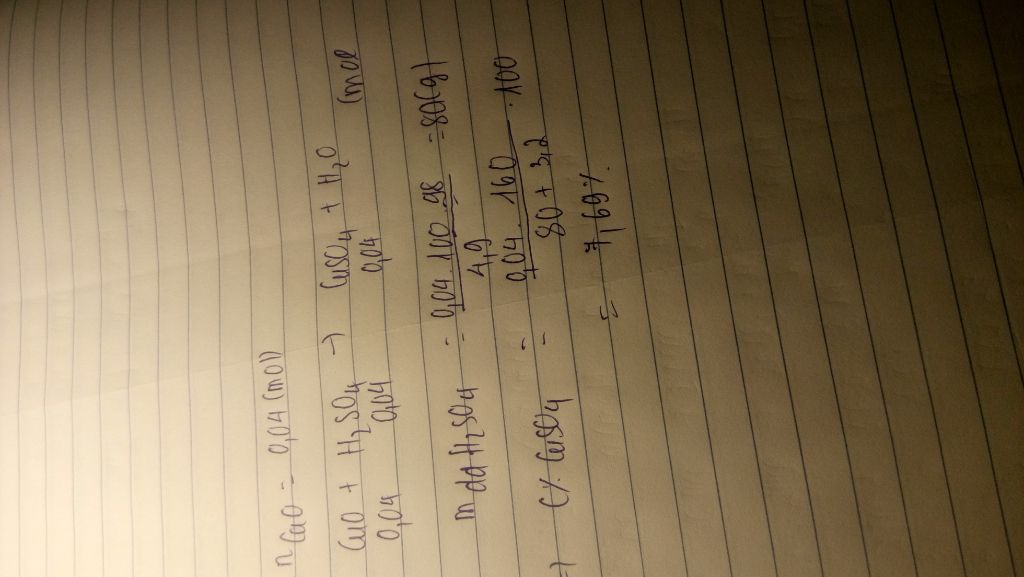 n CuO = 0,04 (mol)
CuO + H2SO4 → CuSO4 + H2O
0,04 0,04 0,04 (mol
m dd H2SO4 = 0,04.100.98 / 4,9 = 80(g)
=> C% CuSO4 = 0,04.160 / 80 + 3,2 . 100
= 7,69%.